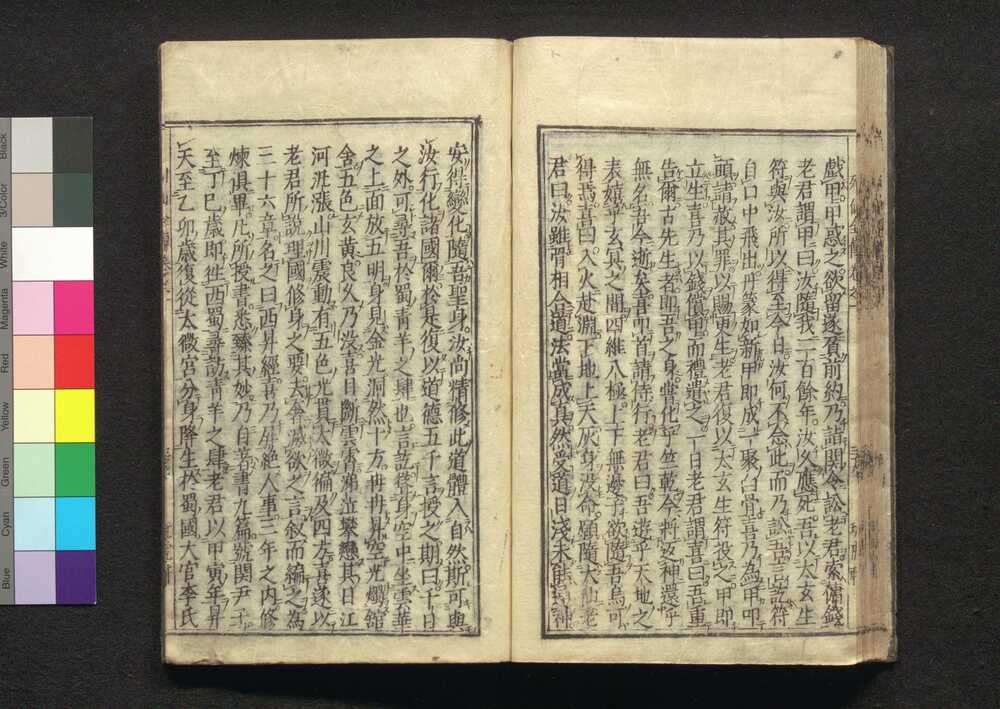 戯甲甲惑之欲留遂負前約乃詣関令訟老君索傭錢
老君謂甲曰汝隨我二百餘年汝久應死吾以太玄生
符與汝所以得至今日汝何不念此而乃訟吾言訖符
自口中飛出丹篆如新甲即成一聚白骨喜乃為甲叩
頭請赦其罪以賜更生老君復以太玄生符投之甲即
立生喜乃以錢償甲而禮遣之一日老君謂喜曰吾重
告爾古先生者即吾之身嘗化乎竺乾今將返神還乎
無名吾今逝矣喜叩首請侍行老君曰吾遊乎天地之
表嬉乎玄冥之間四維八極上下無邊子欲隨吾烏可
得焉喜曰入火赴淵下地上天灰身没命願隨大仙老
君曰汝雖骨相合道法當成真然受道日淺未能通神
安得變化隨吾聖身汝尚精修此道體入自然斯可與
汝行化諸國爾於是復以道德五千言授之期曰千日
之外可尋吾於蜀青羊之肆也言訖聳身空中坐雲華
之上面放五明身見金光洞然十方冉冉昇空光燭館
舎五色玄黄良久乃没喜目斷雲霄涕泣攀戀其日江
河汎漲山川震動有五色光貫太微徧及四方喜遂以
老君所説理國修身之要去奢滅欲之言叙而編之為
三十六章名之曰西昇經喜乃屏絶人事三年之内修
煉俱畢凡所授書悉臻其妙乃自著書九篇號関尹子
至丁巳歳即徃西蜀尋訪青羊之肆老君以甲寅年昇
天至乙卯歳復從太微宮分身降生於蜀國大官李氏